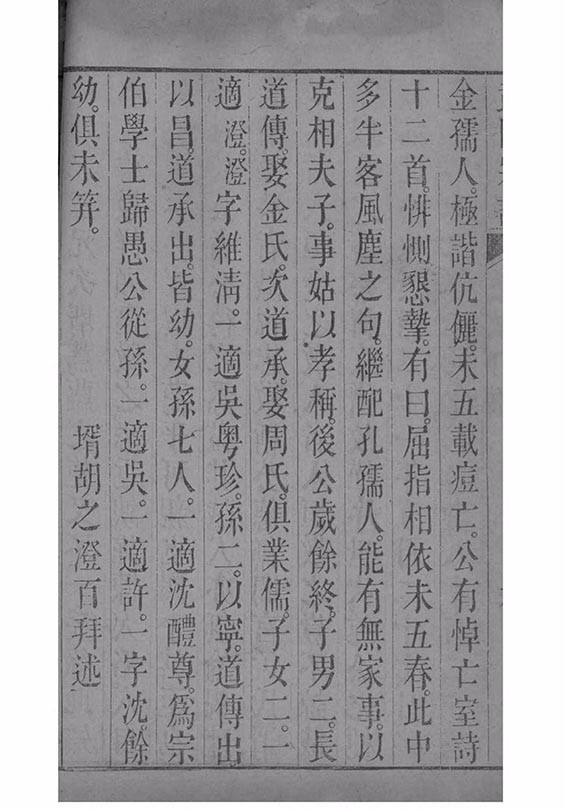 金孺人。極諧伉儷。未五載痘亡。公有悼亡室詩
十二首。悱惻懇摯。有曰。屈指相依未五春。此中
多半客風塵之句。繼配孔孺人。能有無家事。以
克相夫子。事姑以孝稱。後公歲餘終。子男二。長
道傳。娶金氏。次道承。娶周氏。俱業儒。子女二。一
適 澄。澄字維淸。一適吳粤珍。孫二。以寧。道傳出
以昌。道承出。皆幼。女孫七人。一適沈醴尊。爲宗
伯學士歸愚公從孫。一適吳。一適許。一字沈餘
幼。俱未笄。 壻胡之澄百拜述